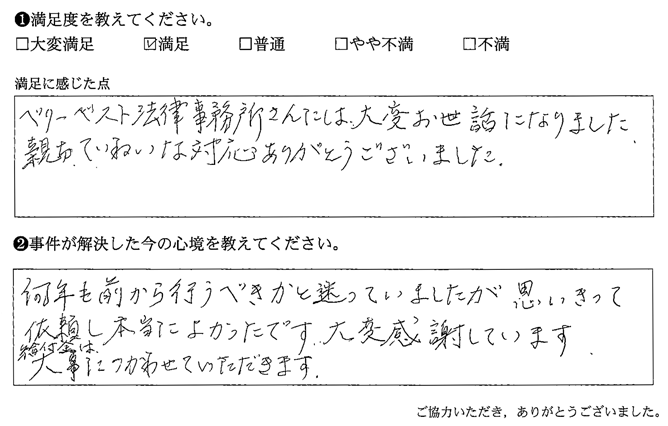 ❶満足度を教えてください。
□大変満足 ☑満足 □普通 □やや不満 □不満
満足に感じた点
ベリーベスト法律事務所さんには、大変お世話になりました、
ていねいな対応ありがとうございました。
❷事件が解決した今の心境を教えてください。
何年も前から行うべきかと迷っていましたが 思いきって
依頼し本当によかったです。大変感謝しています
給付金は、
大事につかわせていただきます。
ご協力いただき，ありがとうございました。